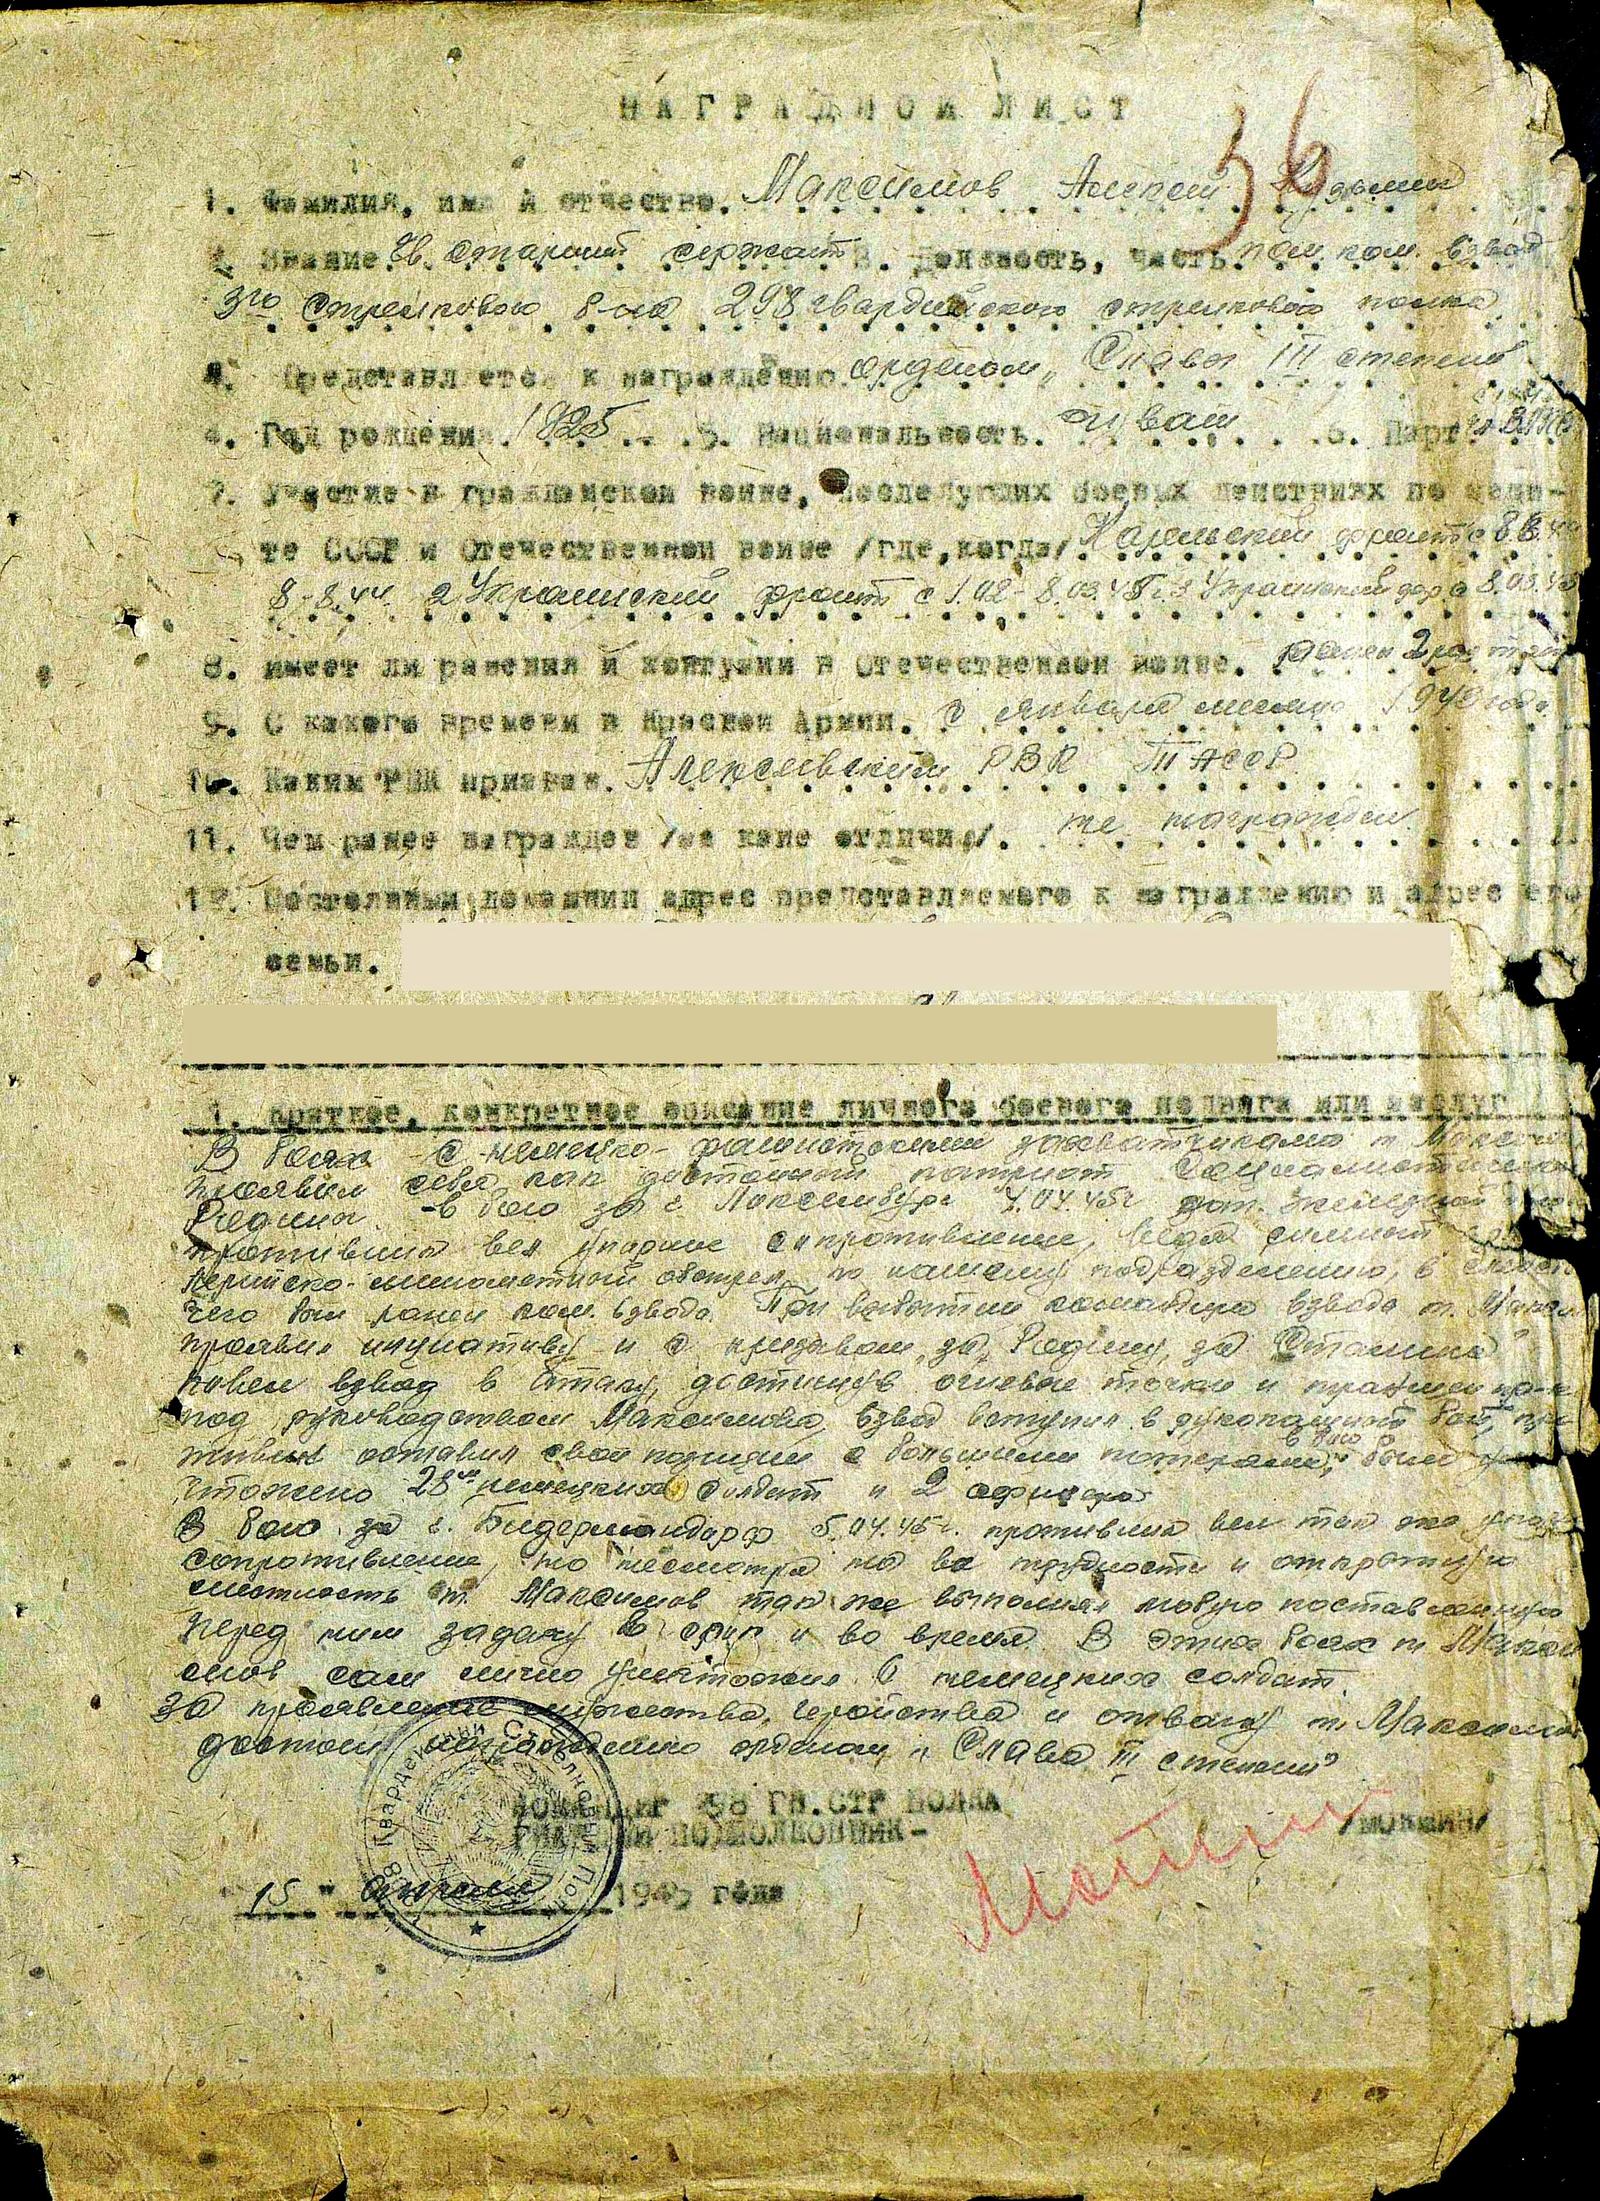 НАГРАДНОЙ ЛИСТ
36
1. Фамилия, имя и отчество. Максимов Алексей Кузьмич
2. Звание. Гв. старший сержант 3. Должность, часть. пом. ком. взвод
3го стрелкового б-на 298 гвардейского стрелкового полка
4. Представляется к награждению. орденом „Слава III степени
4. Год рождения. 1925 5. Национальность. чуваш 6. Парт
7. Участие в гражданской войне, последующих боевых действиях по защи-
те СССР и Отечественной войне /где,когда/. Карельский фронт с
8.8.44 2 Украинский фронт с 1.02-8.03.45г. 3 Украинский фр с 8.03.45
8. Имеет ли ранения и контузии в Отечественной войне. ранен 2
9. С какого времени в Красной Армии. с января месяца 1940 года
10. Каким РВК призван. Алексеевским РВК ТАССР
11. Чем ранее награжден /за какие отличия/. не награжден
12. Постоянный домашний адрес представляемого к награждению и адрес его
семьи.
1. Краткое, конкретное описание личного боевого подвига или заслуг
В боях с немецко-фашистскими захватчиками т. Макси
проявил себя как достойный патриот Социалистической
Родины. в бою за г. Локсембург 4.04.45г
противник вел упорное сопротивление, ведя сильный
лерийско-минометный обстрел по нашему подразделению, в
чего был ранен ком. взвода. При выбытии командира взвода т. Макси
проявил инициативу и с призывом „за Родину, за Сталина"
повел взвод в атаку, достигнув огневые точки и траншеи
под руководством Максимова взвод вступил в рукопашный бой,
тивник оставил свои позиции с большими потерями, в бою было
чтожено 28 немецких солдат и 2 офицера
В бою за г. Бидермандорф 5.04.45г. противник вел так же
сопротивление, но несмотря на все трудности и открытую
местность т. Максимов так же выполнил новую поставленную
перед ним задачу в срок и во время. В этих боях т. Макси
мов сам лично уничтожил 6 немецких солдат.
За проявление мужества, геройства и отвагу т. Максимов
достоин награждению орденом „Слава III степени"
КОМАНДИР 298 ГВ.СТР ПОЛКА
ГВАРДИИ ПОДПОЛКОВНИК-
15 " апреля 1945 года
Гвардейский Стрелковый Полк